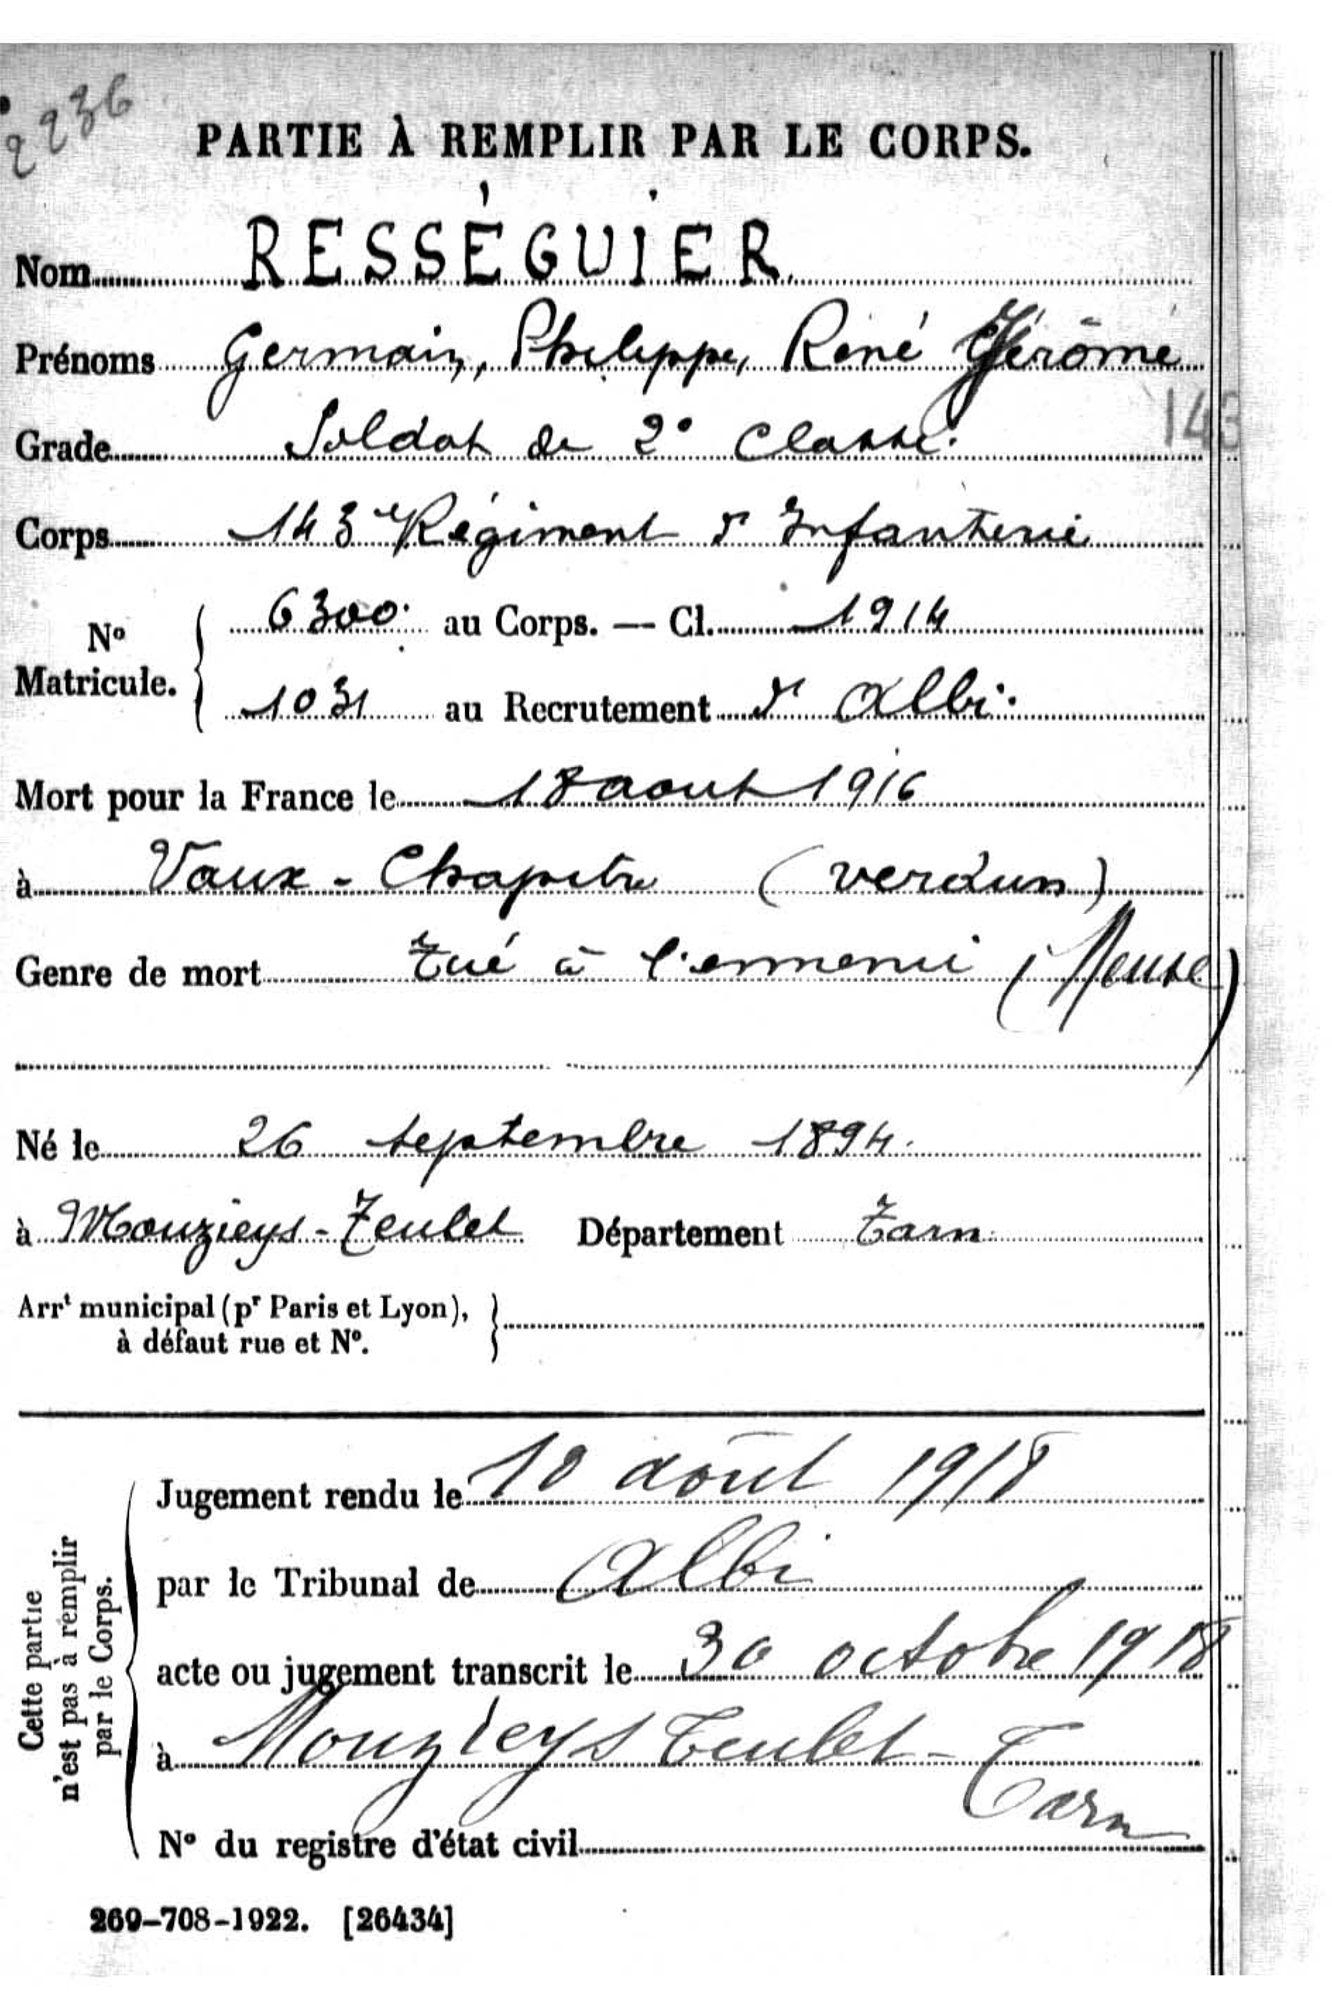 2236
PARTIE À REMPLIR PAR LE CORPS.
Nom RESSÉGUIER
Prénoms Germain, Philippe, René Jérôme
143
Grade Soldat de 2e Classe.
Corps 143e Régiment d' Infanterie
No Matricule. { 6300. au Corps. — Cl. 1914
1031 au Recrutement d' Albi.
Mort pour la France le 18 aout 1916
à Vaux-Chapitre (Verdun)
Genre de mort tué à l'ennemi (Meuse)
Né le 26 septembre 1894.
à Mouzieys-Teulet Département Tarn
Arrt municipal (pr Paris et Lyon), }
à défaut rue et No.
Cette partie
n'est pas à remplir
par le Corps.
Jugement rendu le 10 août 1918
par le Tribunal de Albi
acte ou jugement transcrit le 30 octobre 1918
à Mouzieys Teulet - Tarn
No du registre d'état civil
269-708-1922. [26434]